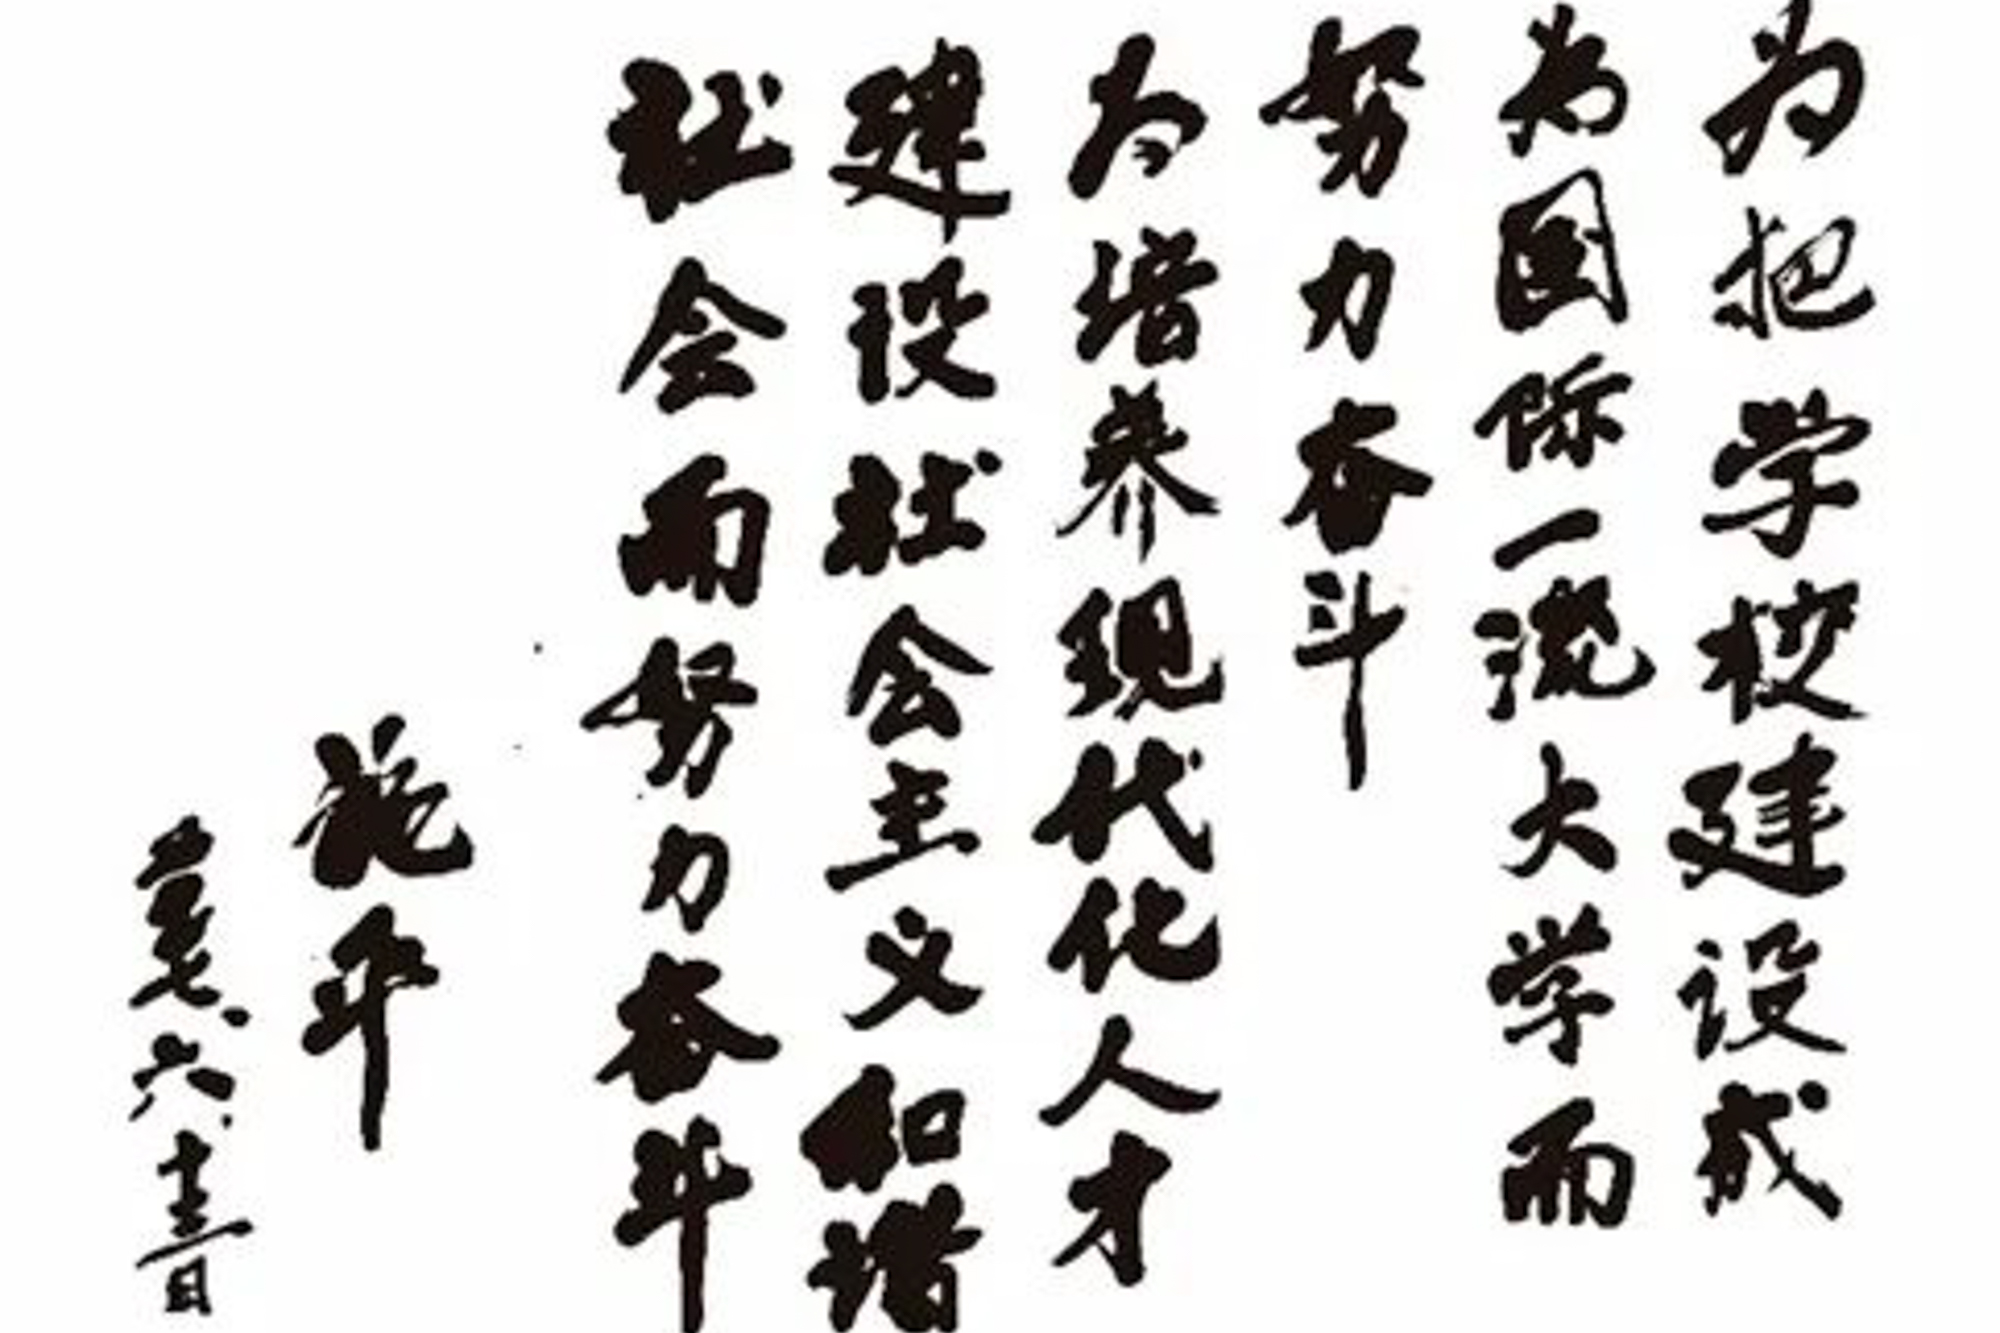 为把学校建设成
为国际一流大学而
努力奋斗
为培养现代化人才
建设社会主义和谐
社会而努力奋斗
施平
七、六、十三日